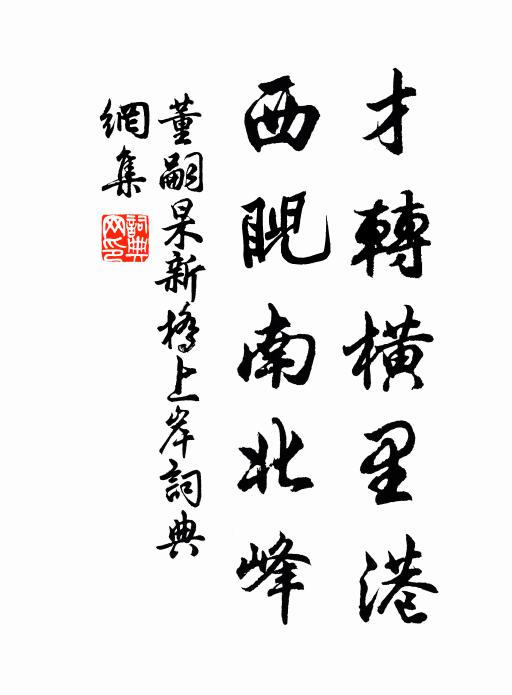 才轉橫里港
西睨南北峰
董嗣杲新橋上岸詞典
網集
詞典
網印